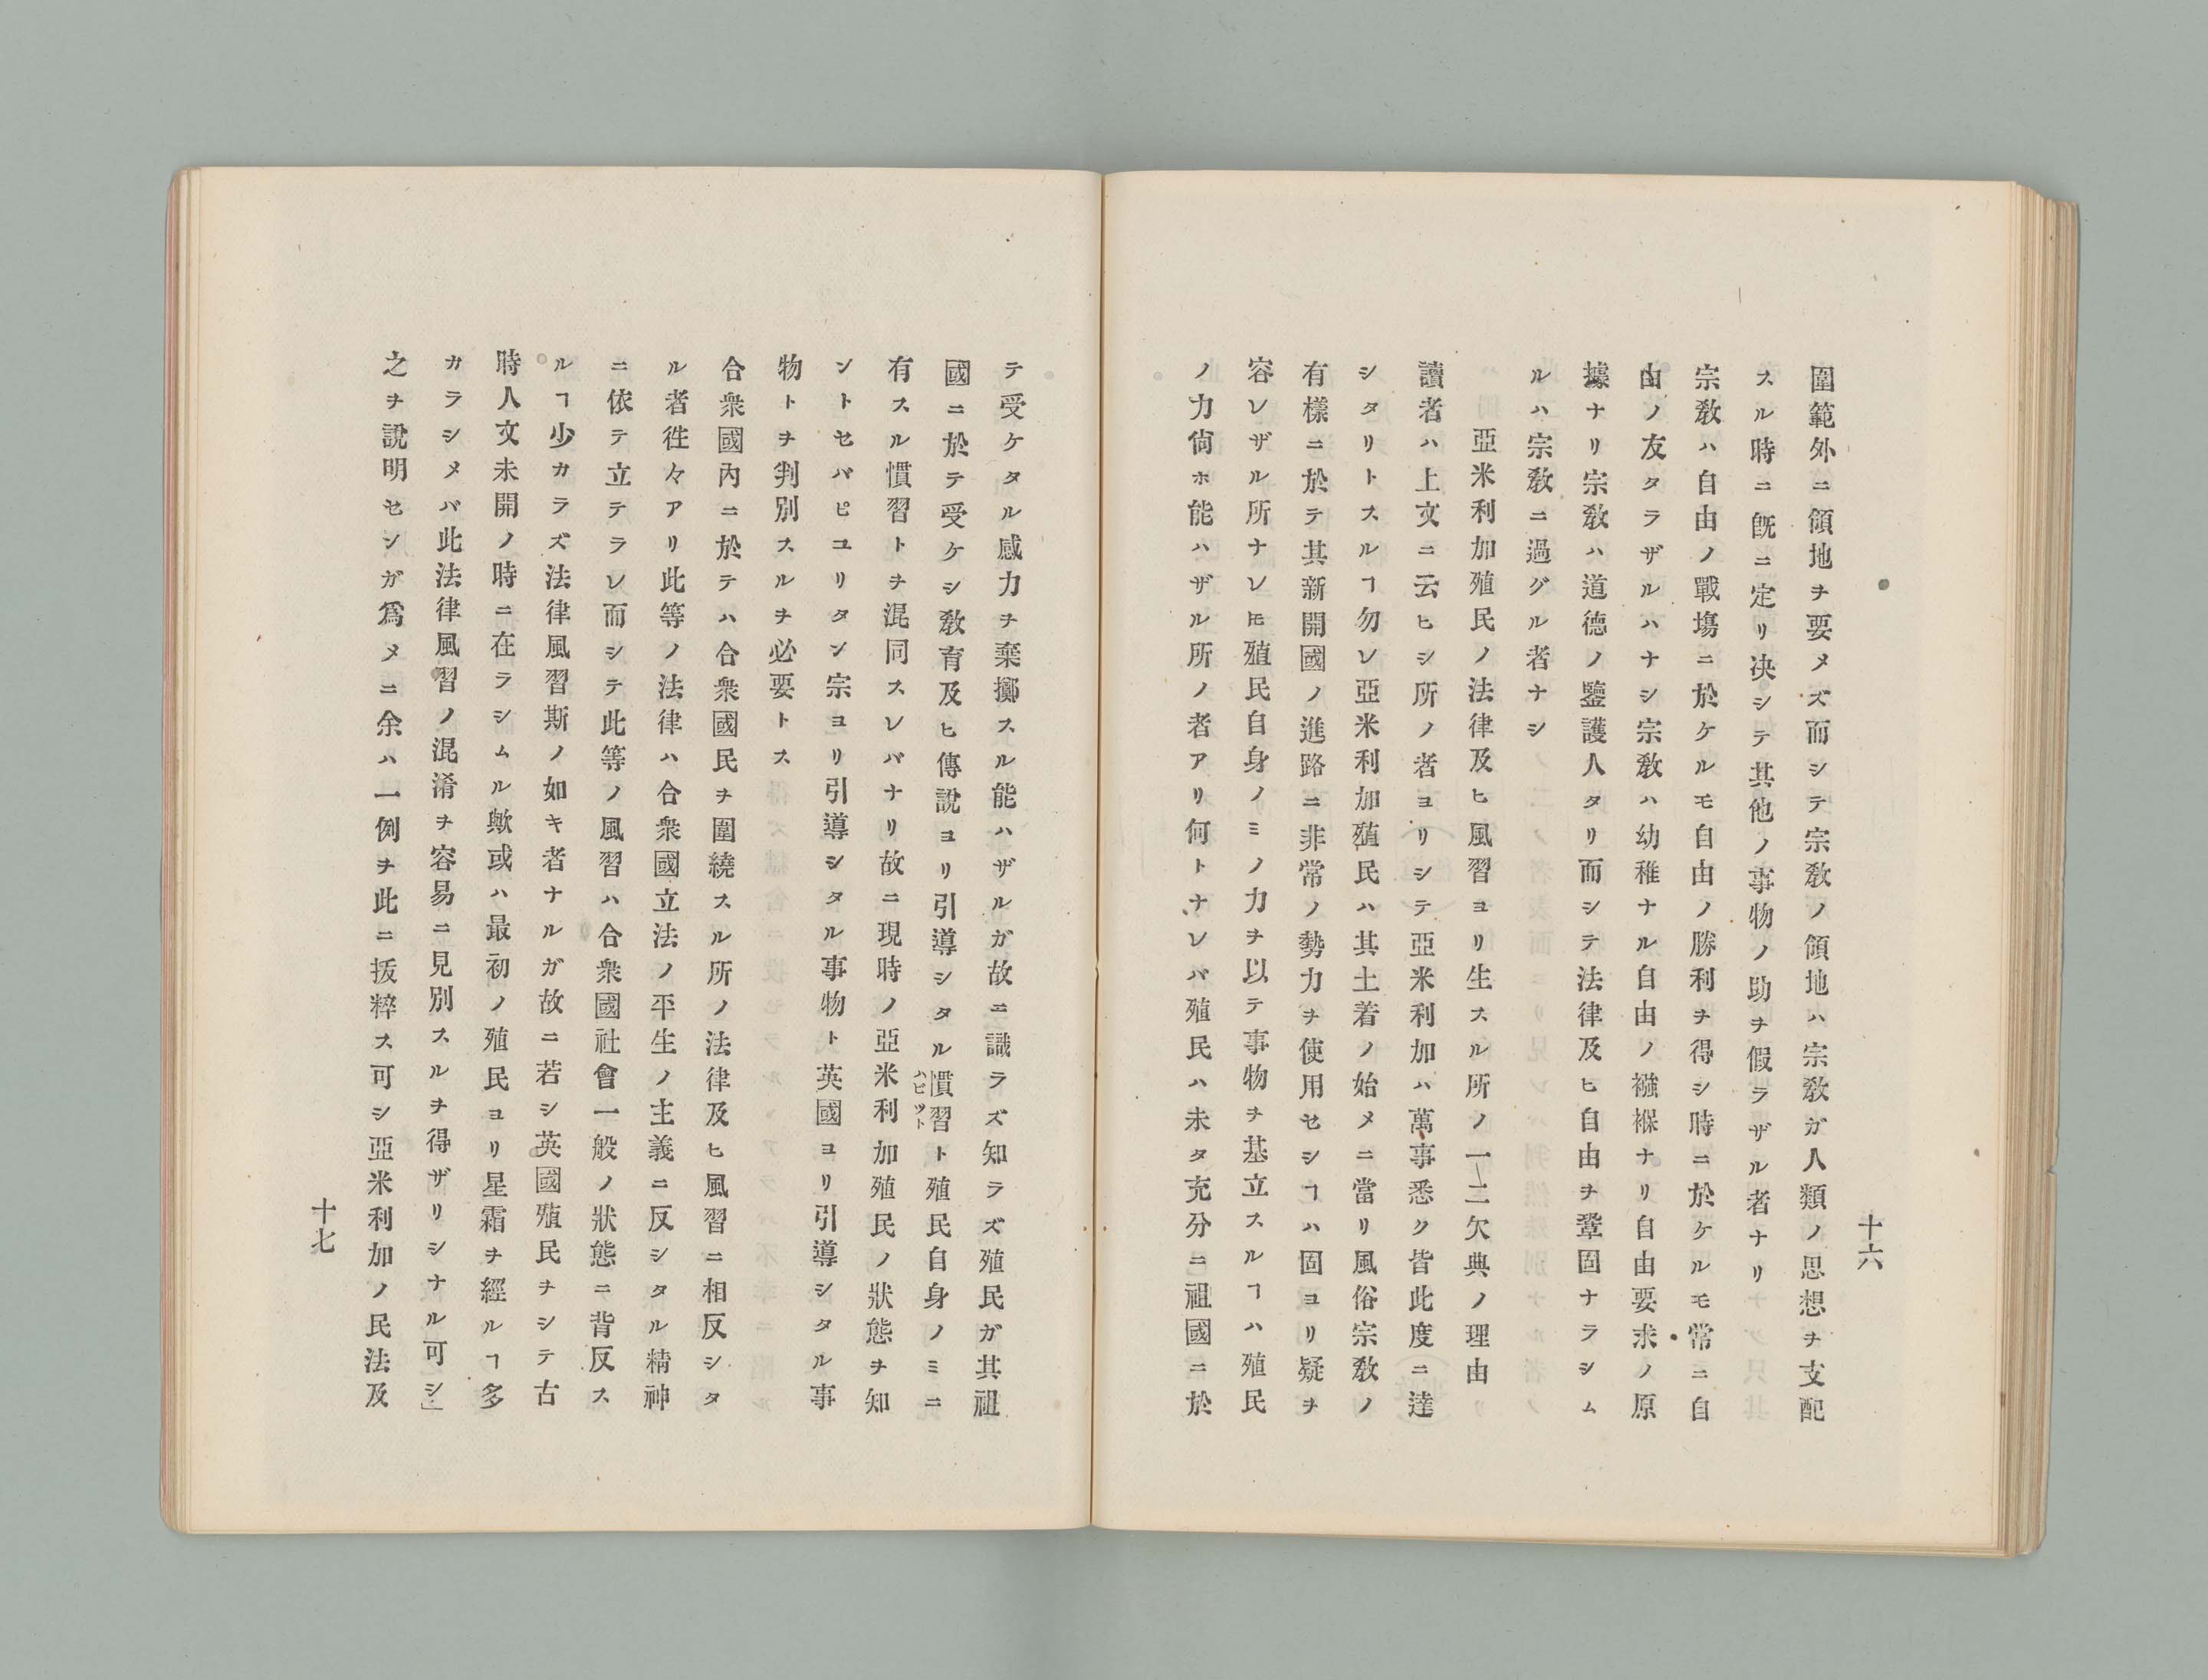 十六
圍範外ニ領地ヲ要メズ而シテ宗敎ノ領地ハ宗敎ガ人類ノ思想ヲ支配
スル時ニ旣ニ定リ决シテ其他ノ事物ノ助ヲ假ラザル者ナリ
宗敎ハ自由ノ戰塲ニ於ケルモ自由ノ勝利ヲ得シ時ニ於ケルモ常ニ自
由ノ友タラザルハナシ宗敎ハ幼稚ナル自由ノ襁褓ナリ自由要求ノ原
據ナリ宗敎ハ道德ノ鑒護人タリ而シテ法律及ヒ自由ヲ鞏固ナラシム
ルハ宗敎ニ過グル者ナシ
亞米利加殖民ノ法律及ヒ風習ヨリ生スル所ノ一二欠典ノ理由
讀者ハ上文ニ云ヒシ所ノ者ヨリシテ亞米利加ハ萬事悉ク皆此度ニ達
シタリトスルヿ勿レ亞米利加殖民ハ其土着ノ始メニ當リ風俗宗敎ノ
有樣ニ於テ其新開國ノ進路ニ非常ノ勢力ヲ使用セシヿハ固ヨリ疑ヲ
容レザル所ナレ𪜈殖民自身ノミノ力ヲ以テ事物ヲ基立スルヿハ殖民
ノ力尙ホ能ハザル所ノ者アリ何トナレバ殖民ハ未タ充分ニ祖國ニ於
テ受ケタル感力ヲ棄擲スル能ハザルガ故ニ識ラズ知ラズ殖民ガ其祖
國ニ於テ受ケシ敎育及ヒ傳說ヨリ引導シタル慣習ト殖民自身ノミニ
ハビット
有スル慣習トヲ混同スレバナリ故ニ現時ノ亞米利加殖民ノ狀態ヲ知
ントセバピユリタン宗ヨリ引導シタル事物ト英國ヨリ引導シタル事
物トヲ判別スルヲ必要トス
合衆國內ニ於テハ合衆國民ヲ圍繞スル所ノ法律及ヒ風習ニ相反シタ
ル者徃々アリ此等ノ法律ハ合衆國立法ノ平生ノ主義ニ反シタル精神
ニ依テ立テラレ而シテ此等ノ風習ハ合衆國社會一般ノ狀態ニ背反ス
ルヿ少カラズ法律風習斯ノ如キ者ナルガ故ニ若シ英國殖民ヲシテ古
時人文未開ノ時ニ在ラシムル歟或ハ最初ノ殖民ヨリ星霜ヲ經ルヿ多
カラシメバ此法律風習ノ混淆ヲ容易ニ見別スルヲ得ザリシナル可シ」
之ヲ說明センガ爲メニ余ハ一例ヲ此ニ拔粹ス可シ亞米利加ノ民法及
十七